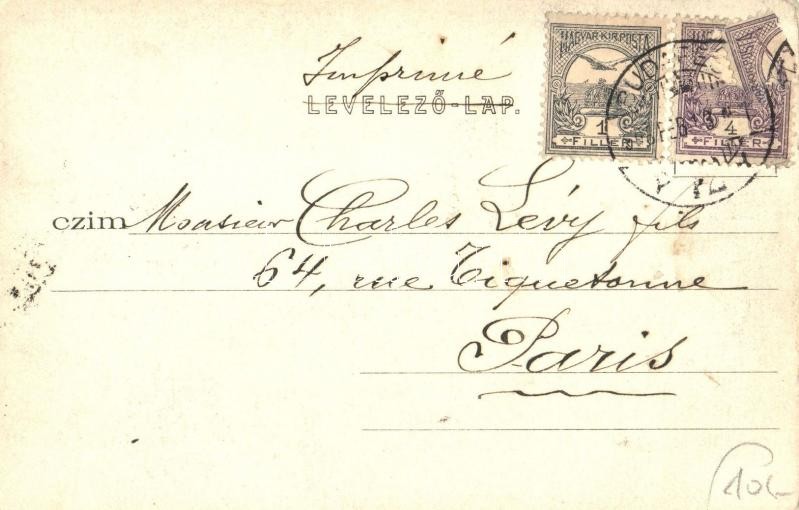 Imprimé
LEVELEZŐ-LAP.
MAGYAR·KIR·POSTA
1
FILLÉR
4
FILLÉR
BUDAPEST
FEB
czim Monsieur Charles Lévy fils
64, rue Tiquetonne
Paris